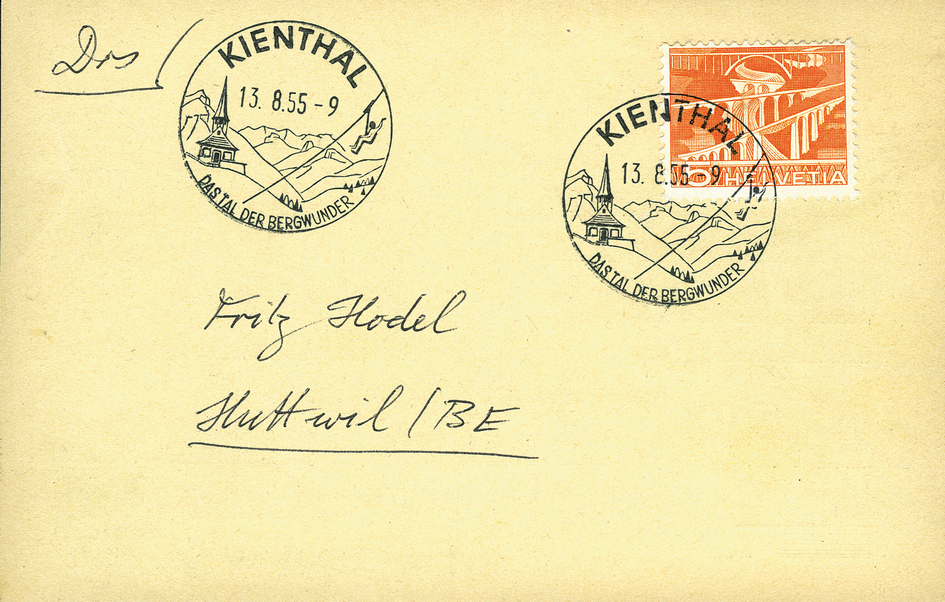 Drs /
KIENTHAL
13. 8.55 - 9
DAS TAL DER BERGWUNDER
KIENTHAL
13. 8.55 - 9
DAS TAL DER BERGWUNDER
5 HELVETIA
Fritz Hodel
Huttwil / BE